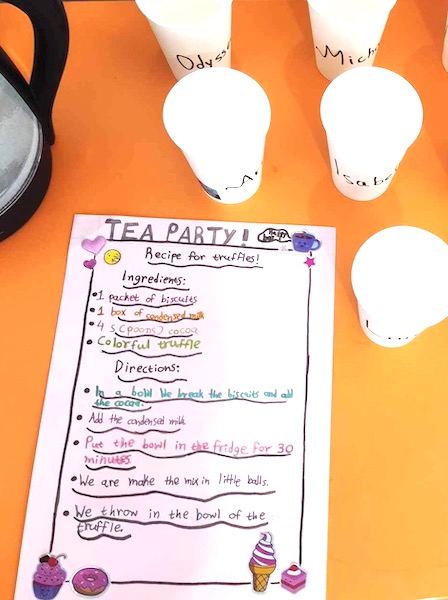 Odysse
Mich
Isabe
TEA PARTY!
Recipe for truffles!
Ingredients:
• 1 packet of biscuits
• 1 box of condensed milk
• 4 s(poons) cocoa
• Colorful truffle
Directions:
• In a bowl We break the biscuits and add
the cocoa.
• Add the condensed milk
• Put the bowl in the fridge for 30
minutes
• We are make the mix in little balls.
• We throw in the bowl of the
truffle.